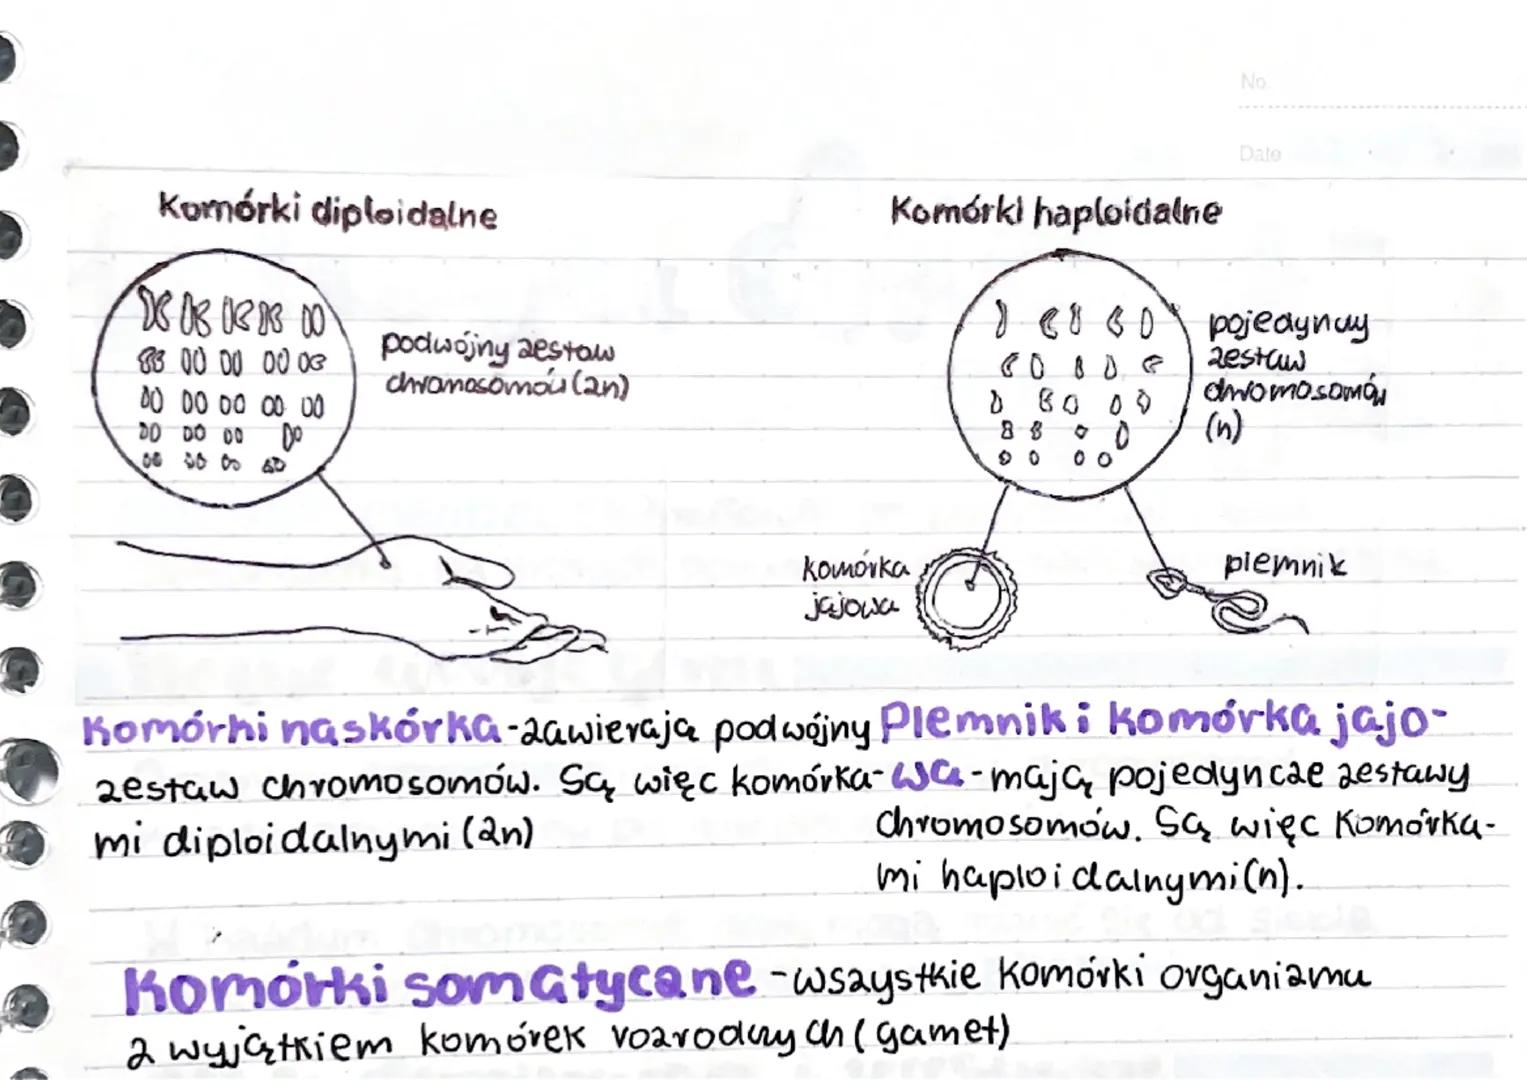 No.
Date
Komórki diploidalne
podwójny zestaw
chromosomów (2n)
Komórki haploidalne
pojedynczy
zestaw
chromosomów
(n)
komórka
jajowa
plemnik
Komórki naskórka - zawierają podwójny
zestaw chromosomów. Są więc komórka-
mi diploidalnymi (2n)
Plemnik i komórka jajo-
wa - mają pojedyncze zestawy
chromosomów. Są więc komórka-
mi haploidalnymi (n).
Komórki somatyczne - wszystkie komórki organizmu
z wyjątkiem komórek rozrodczych (gamet)